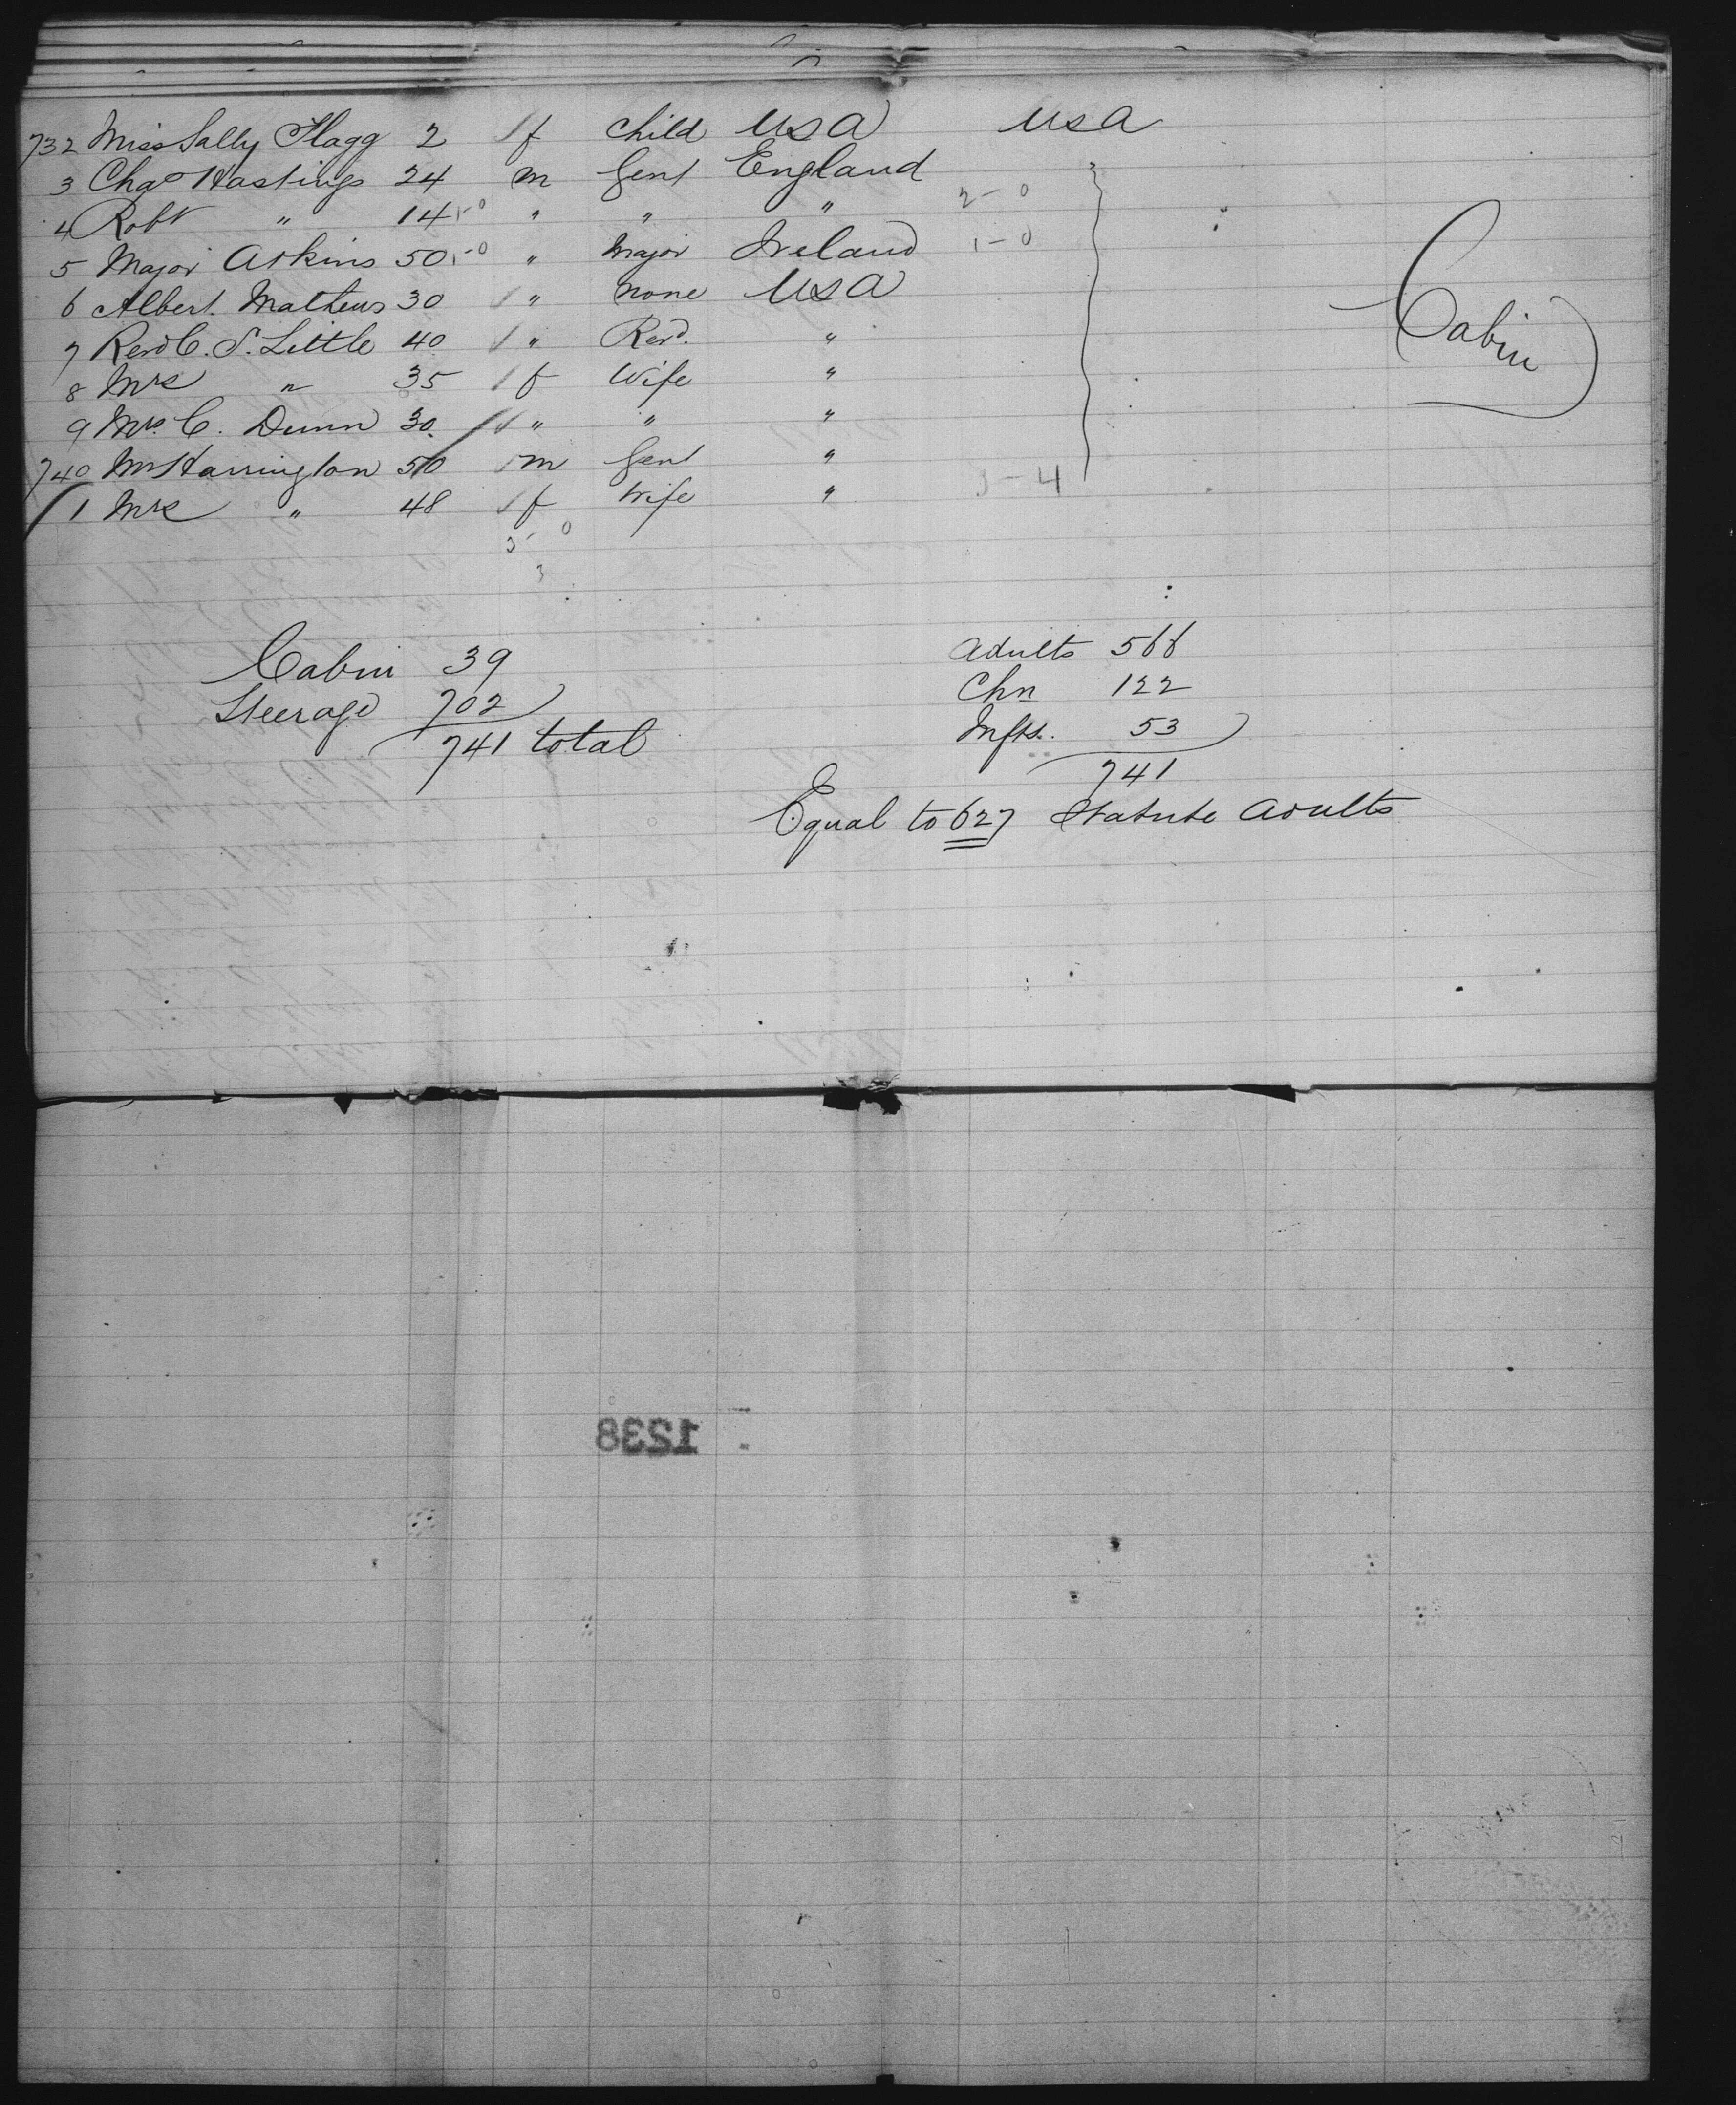 732 Miss Sally Flagg 2 f Child USA USA
3 Chas Hastings 24 m Gent England
4 Robt " 14 " " " 2-0
5 Major Atkins 50 " Major Ireland 1-0
6 Albert Mathews 30 " None USA
7 Revd C. S. Little 40 " Revd. "
8 Mrs " 35 f Wife "
9 Mrs. C. Dunn 30 " " "
740 Mr Harrington 50 m Gent "
1 Mrs " 48 f Wife " 3-4
3-0
3
Cabin
Cabin 39
Steerage 702
741 total
Adults 566
Chn 122
Infts. 53
741
Equal to 627 Statute Adults
1238